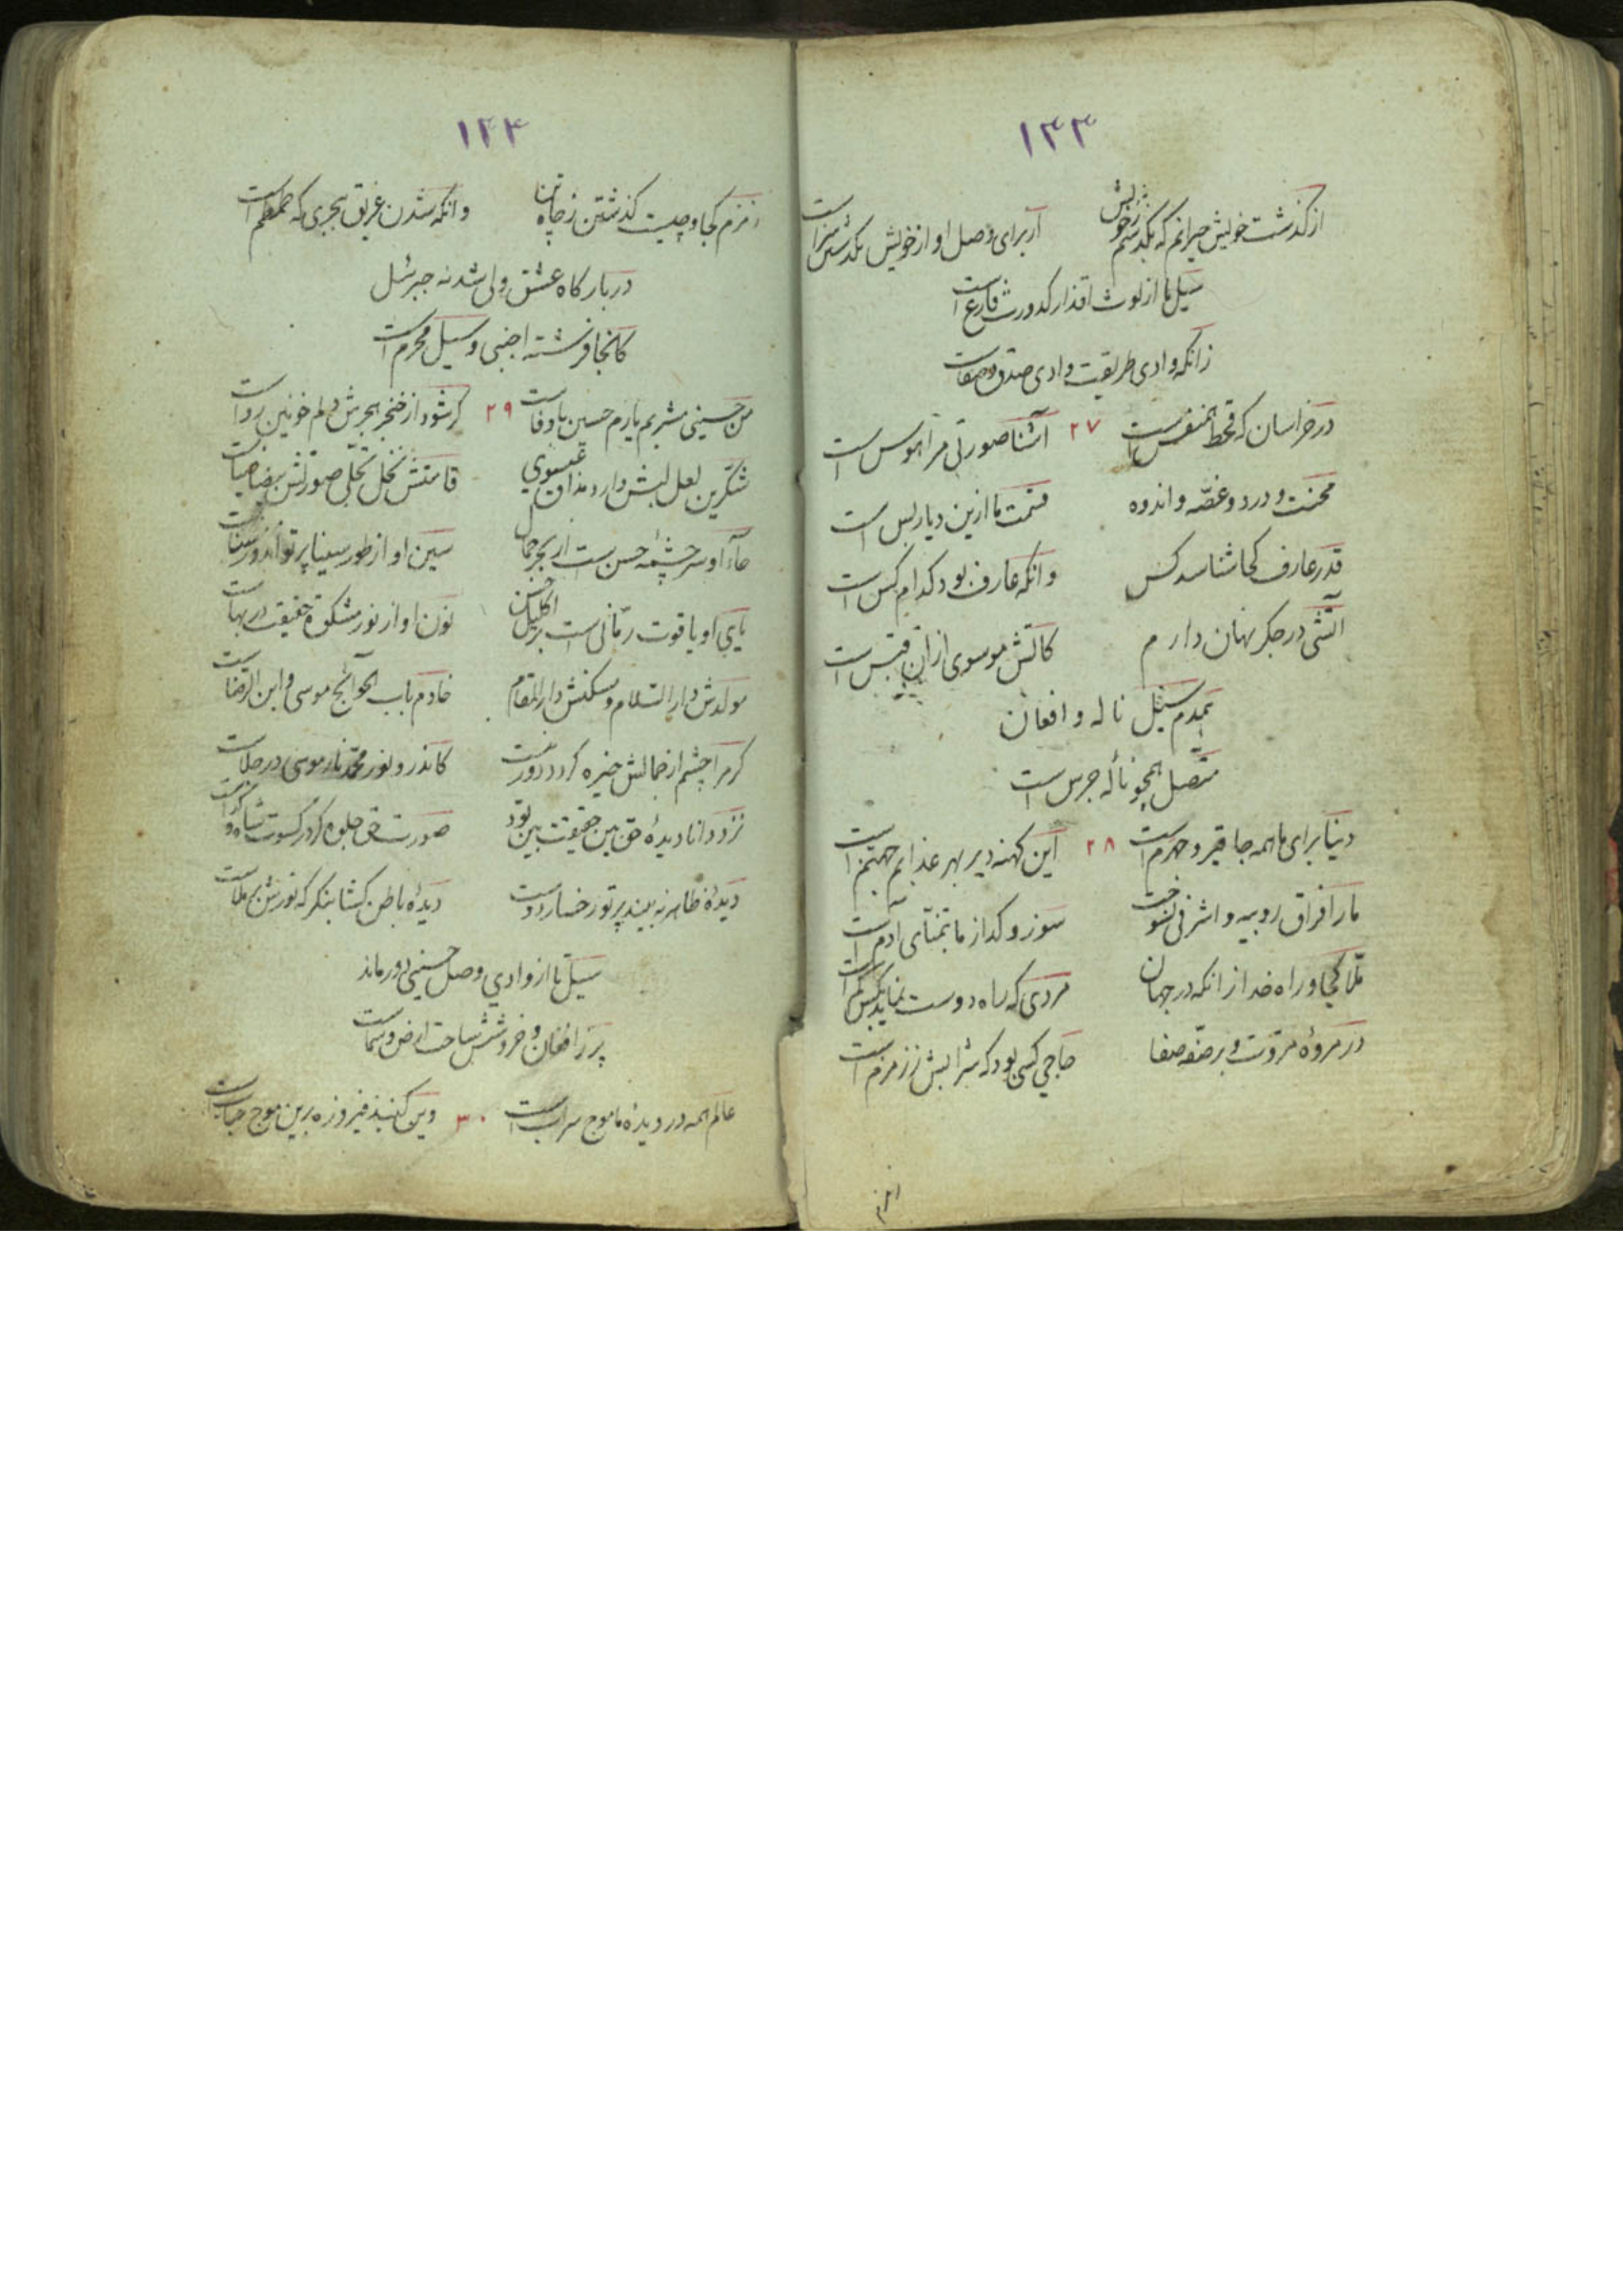 ۱۳۳
از گذشت خویش حیرانم که بگذشتم ز خویش آر برای وصل او از خویش بگذشتن سزاست
سیل ما از لوث اقذار کدورت فارغ است
زانکه وادی طریقت وادی صدق و صفاست
در خراسان که قحط همنفس است ۲۷ آشنا صورتی مرا هوس است
محنت و درد و غصّه و اندوه قسمت ما ازین دیار بس است
قدر عارف کجا شناسد کس وانکه عارف بود کدام کس است
آتشی در جگر نهان دارم کاتش موسوی از آن قبس است
همدم سیل ناله و افغان
متّصل همچو نالهٔ جرس است
دنیا برای ما همه جا قیر و جهرم است ۲۸ این کهنه دیر بهر عذابم جهنم است
ما را فراق روپیه و اشرفی نسوخت سوز و گداز ما بتمنّای آدم است
ملّا کجا و راه خدا زانکه در جهان مردی که راه دوست نماید بکس کم است
در مروهٔ مروّت و بر صفّه صفا حاجی کسی بود که شرابش ز زمزم است
۱۳۴
زمزم کجا و چیست گذشتن ز چاه تن وانکه شدن غریق بحری که طمطم است
در بارگاه عشق ولی شد نه جبرئیل
کانجا فرشته اجنبی و سیل محرم است
من حسینی مشربم یارم حسین باوفاست ۲۹ گر شود از خنجر هجرش دلم خونین رواست
شکّرین لعل لبش دارد مذاق عیسوی قامتش نخل تجلّی صورتش بیضا ضیاست
حاء او سرچشمهٔ حسن است از بحر جمال سین او از طور سینا پرتو اندوز سناست
یای او یاقوت رمّانی است بر اکلیل حسن نون او از نور مشکوة حقیقت در بهاست
مولدش دار السّلام و مسکنش دار المقام خادم باب الحوائج موسی و ابن الرّضاست
گر مرا چشم از جمالش خیره گردد دور نیست کاندرو نور محمّد نار موسی در جلاست
نزد دانا دیدهٔ حق بین حقیقت بین بود صورت حق جلوه گر در کسوت شاه و گداست
دیدهٔ ظاهر نه بیند پرتو رخسار دوست دیدهٔ باطن گشا بنگر که نورش برملاست
سیل تا از وادی وصل حسینی دور ماند
پر ز افغان و خروشش ساحت ارض و سماست
عالم همه در دیدهٔ ما موج سراب است ۳۰ وین گنبد فیروزه برین موج حباب است